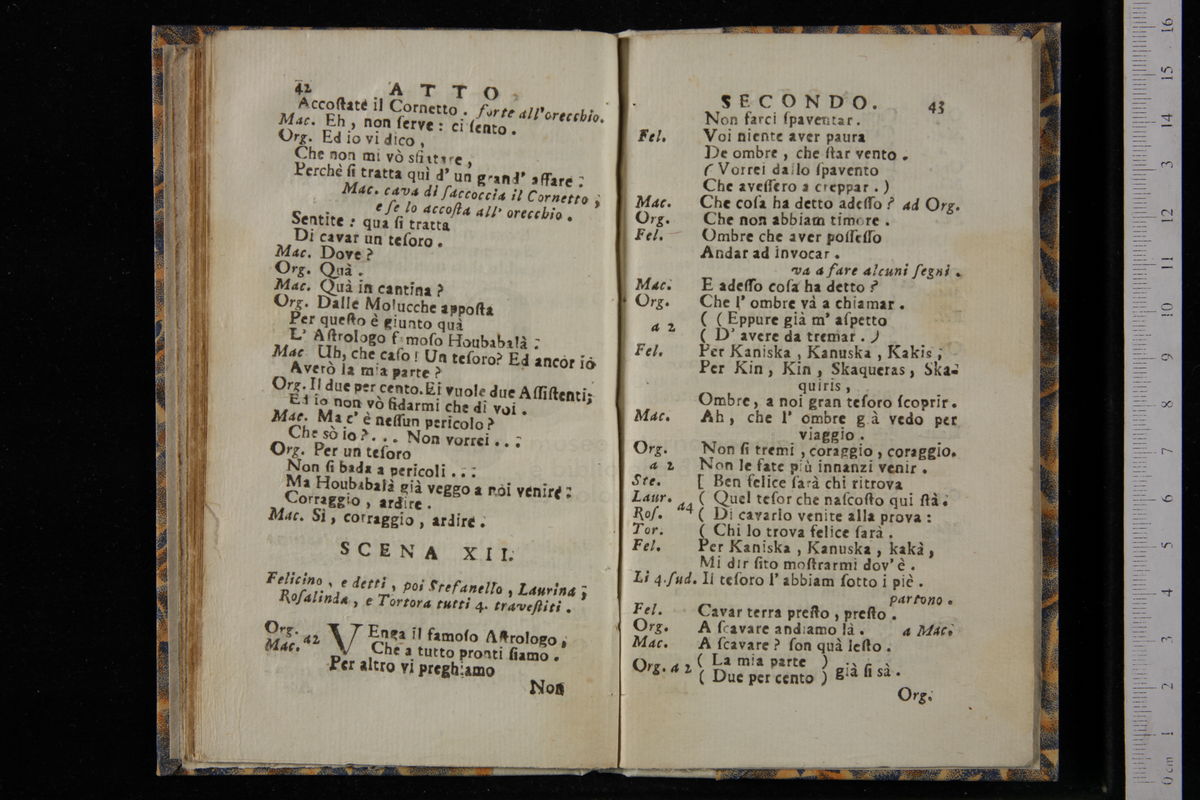 42 ATTO
Accoſtate il Cornetto . forte all'orecchio.
Mac. Eh, non ſerve: ci ſento .
Org. Ed io vi dico ,
Che non mi vò sfiatare ,
Perchè ſi tratta quì d' un grand' affare :
Mac. cava di ſaccoccia il Cornetto ;
e ſe lo accoſta all' orecchio .
Sentite : qua ſi tratta
Di cavar un teſoro .
Mac. Dove ?
Org. Quà .
Mac. Quà in cantina ?
Org. Dalle Molucche appoſta
Per queſto è giunto quà
L' Aſtrologo famoſo Houbabalà :
Mac Uh, che caſo ! Un teſoro? Ed ancor iò
Averò la mia parte ?
Org. Il due per cento. Ei vuole due Aſſiſtenti;
Ed io non vò fidarmi che di voi .
Mac. Ma c' è neſſun pericolo ?
Che sò io ? . . . Non vorrei . . :
Org. Per un teſoro
Non ſi bada a pericoli . . :
Ma Houbabalà già veggo a noi venire :
Corraggio , ardire .
Mac. Sì , corraggio , ardire .
SCENA XII.
Felicino , e detti , poi Stefanello , Laurina ;
Roſalinda , e Tortora tutti 4. traveſtiti .
Org. a2 VEnga il famoſo Aſtrologo ,
Mac. Che a tutto pronti ſiamo .
Per altro vi preghiamo
Non
SECONDO. 43
Non farci ſpaventar .
Fel. Voi niente aver paura
De ombre , che ſtar vento .
( Vorrei dallo ſpavento
Che aveſſero a creppar . )
Mac. Che coſa ha detto adeſſo ? ad Org.
Org. Che non abbiam timore .
Fel. Ombre che aver poſſeſſo
Andar ad invocar .
va a fare alcuni ſegni .
Mac. E adeſſo coſa ha detto ?
Org. Che l' ombre và a chiamar .
a 2 ( ( Eppure già m' aſpetto
( D' avere da tremar . )
Fel. Per Kaniska , Kanuska , Kakis ,
Per Kin , Kin , Skaqueras , Ska-
quiris ,
Ombre, a noi gran teſoro ſcoprir.
Mac. Ah, che l' ombre già vedo per
viaggio .
Org. Non ſi tremi , coraggio , coraggio.
a 2 Non le fate più innanzi venir .
Ste. [ Ben felice ſarà chi ritrova
Laur. a4 ( Quel teſor che naſcoſto qui ſtà .
Roſ. ( Di cavarlo venite alla prova :
Tor. ( Chi lo trova felice ſarà .
Fel. Per Kaniska , Kanuska , kakà ,
Mi dir ſito moſtrarmi dov' è .
Li 4. ſud. Il teſoro l' abbiam ſotto i piè .
partono .
Fel. Cavar terra preſto , preſto .
Org. A ſcavare andiamo là . a Mac.
Mac. A ſcavare ? ſon quà leſto .
Org. a 2 ( La mia parte ) già ſi sà .
( Due per cento )
Org.